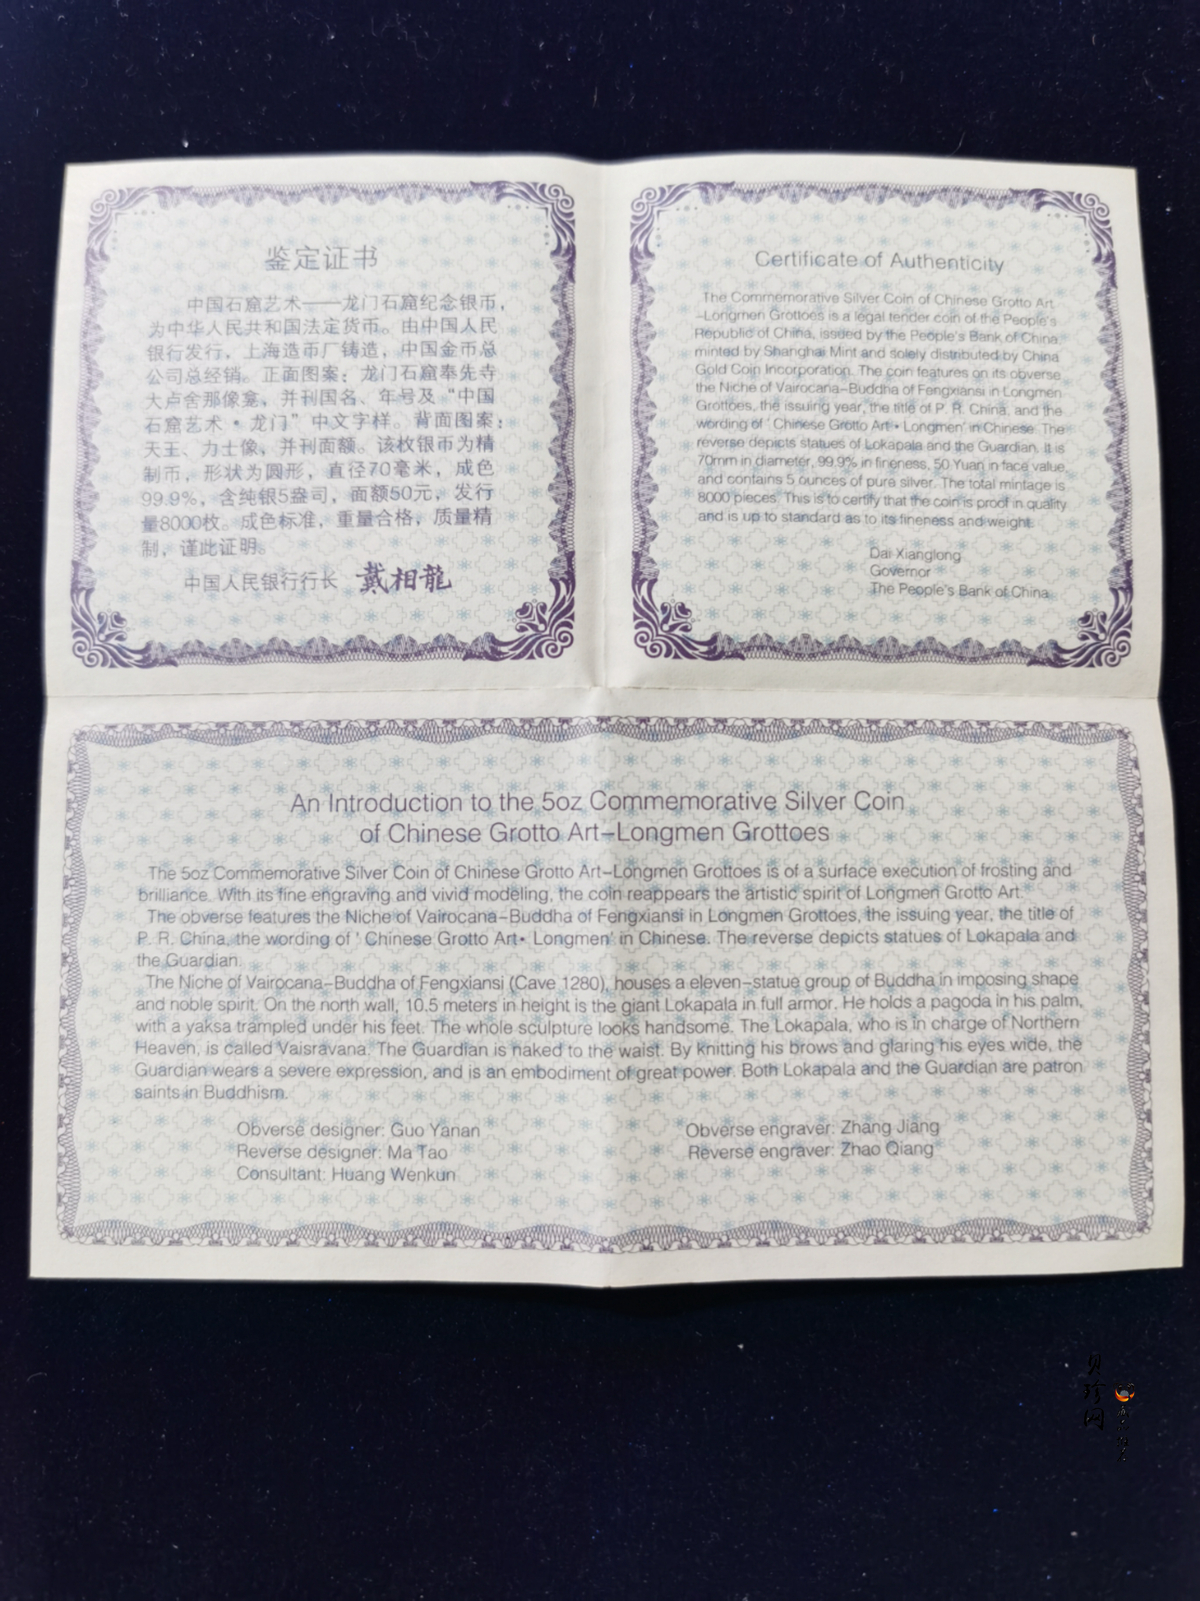 鉴定证书
中国石窟艺术——龙门石窟纪念银币，
为中华人民共和国法定货币。由中国人民
银行发行，上海造币厂铸造，中国金币总
公司总经销。正面图案：龙门石窟奉先寺
大卢舍那像龛，并刊国名、年号及“中国
石窟艺术·龙门”中文字样。背面图案：
天王、力士像，并刊面额。该枚银币为精
制币，形状为圆形，直径70毫米，成色
99.9%，含纯银5盎司，面额50元，发行
量8000枚。成色标准，重量合格，质量精
制，谨此证明。
中国人民银行行长 戴相龍
Certificate of Authenticity
The Commemorative Silver Coin of Chinese Grotto Art
-Longmen Grottoes is a legal tender coin of the People's
Republic of China, issued by the People's Bank of China,
minted by Shanghai Mint and solely distributed by China
Gold Coin Incorporation. The coin features on its obverse
the Niche of Vairocana-Buddha of Fengxiansi in Longmen
Grottoes, the issuing year, the title of P. R. China, and the
wording of ' Chinese Grotto Art• Longmen' in Chinese. The
reverse depicts statues of Lokapala and the Guardian. It is
70mm in diameter, 99.9% in fineness, 50 Yuan in face value,
and contains 5 ounces of pure silver. The total mintage is
8000 pieces. This is to certify that the coin is proof in quality
and is up to standard as to its fineness and weight.
Dai Xianglong
Governor
The People's Bank of China
An Introduction to the 5oz Commemorative Silver Coin
of Chinese Grotto Art-Longmen Grottoes
The 5oz Commemorative Silver Coin of Chinese Grotto Art-Longmen Grottoes is of a surface execution of frosting and
brilliance. With its fine engraving and vivid modeling, the coin reappears the artistic spirit of Longmen Grotto Art.
The obverse features the Niche of Vairocana-Buddha of Fengxiansi in Longmen Grottoes, the issuing year, the title of
P. R. China, the wording of ' Chinese Grotto Art• Longmen' in Chinese. The reverse depicts statues of Lokapala and
the Guardian.
The Niche of Vairocana-Buddha of Fengxiansi (Cave 1280), houses a eleven-statue group of Buddha in imposing shape
and noble spirit. On the north wall, 10.5 meters in height is the giant Lokapala in full armor. He holds a pagoda in his palm,
with a yaksa trampled under his feet. The whole sculpture looks handsome. The Lokapala, who is in charge of Northern
Heaven, is called Vaisravana. The Guardian is naked to the waist. By knitting his brows and glaring his eyes wide, the
Guardian wears a severe expression, and is an embodiment of great power. Both Lokapala and the Guardian are patron
saints in Buddhism.
Obverse designer: Guo Yanan
Reverse designer: Ma Tao
Consultant: Huang Wenkun
Obverse engraver: Zhang Jiang
Reverse engraver: Zhao Qiang
贝珍网